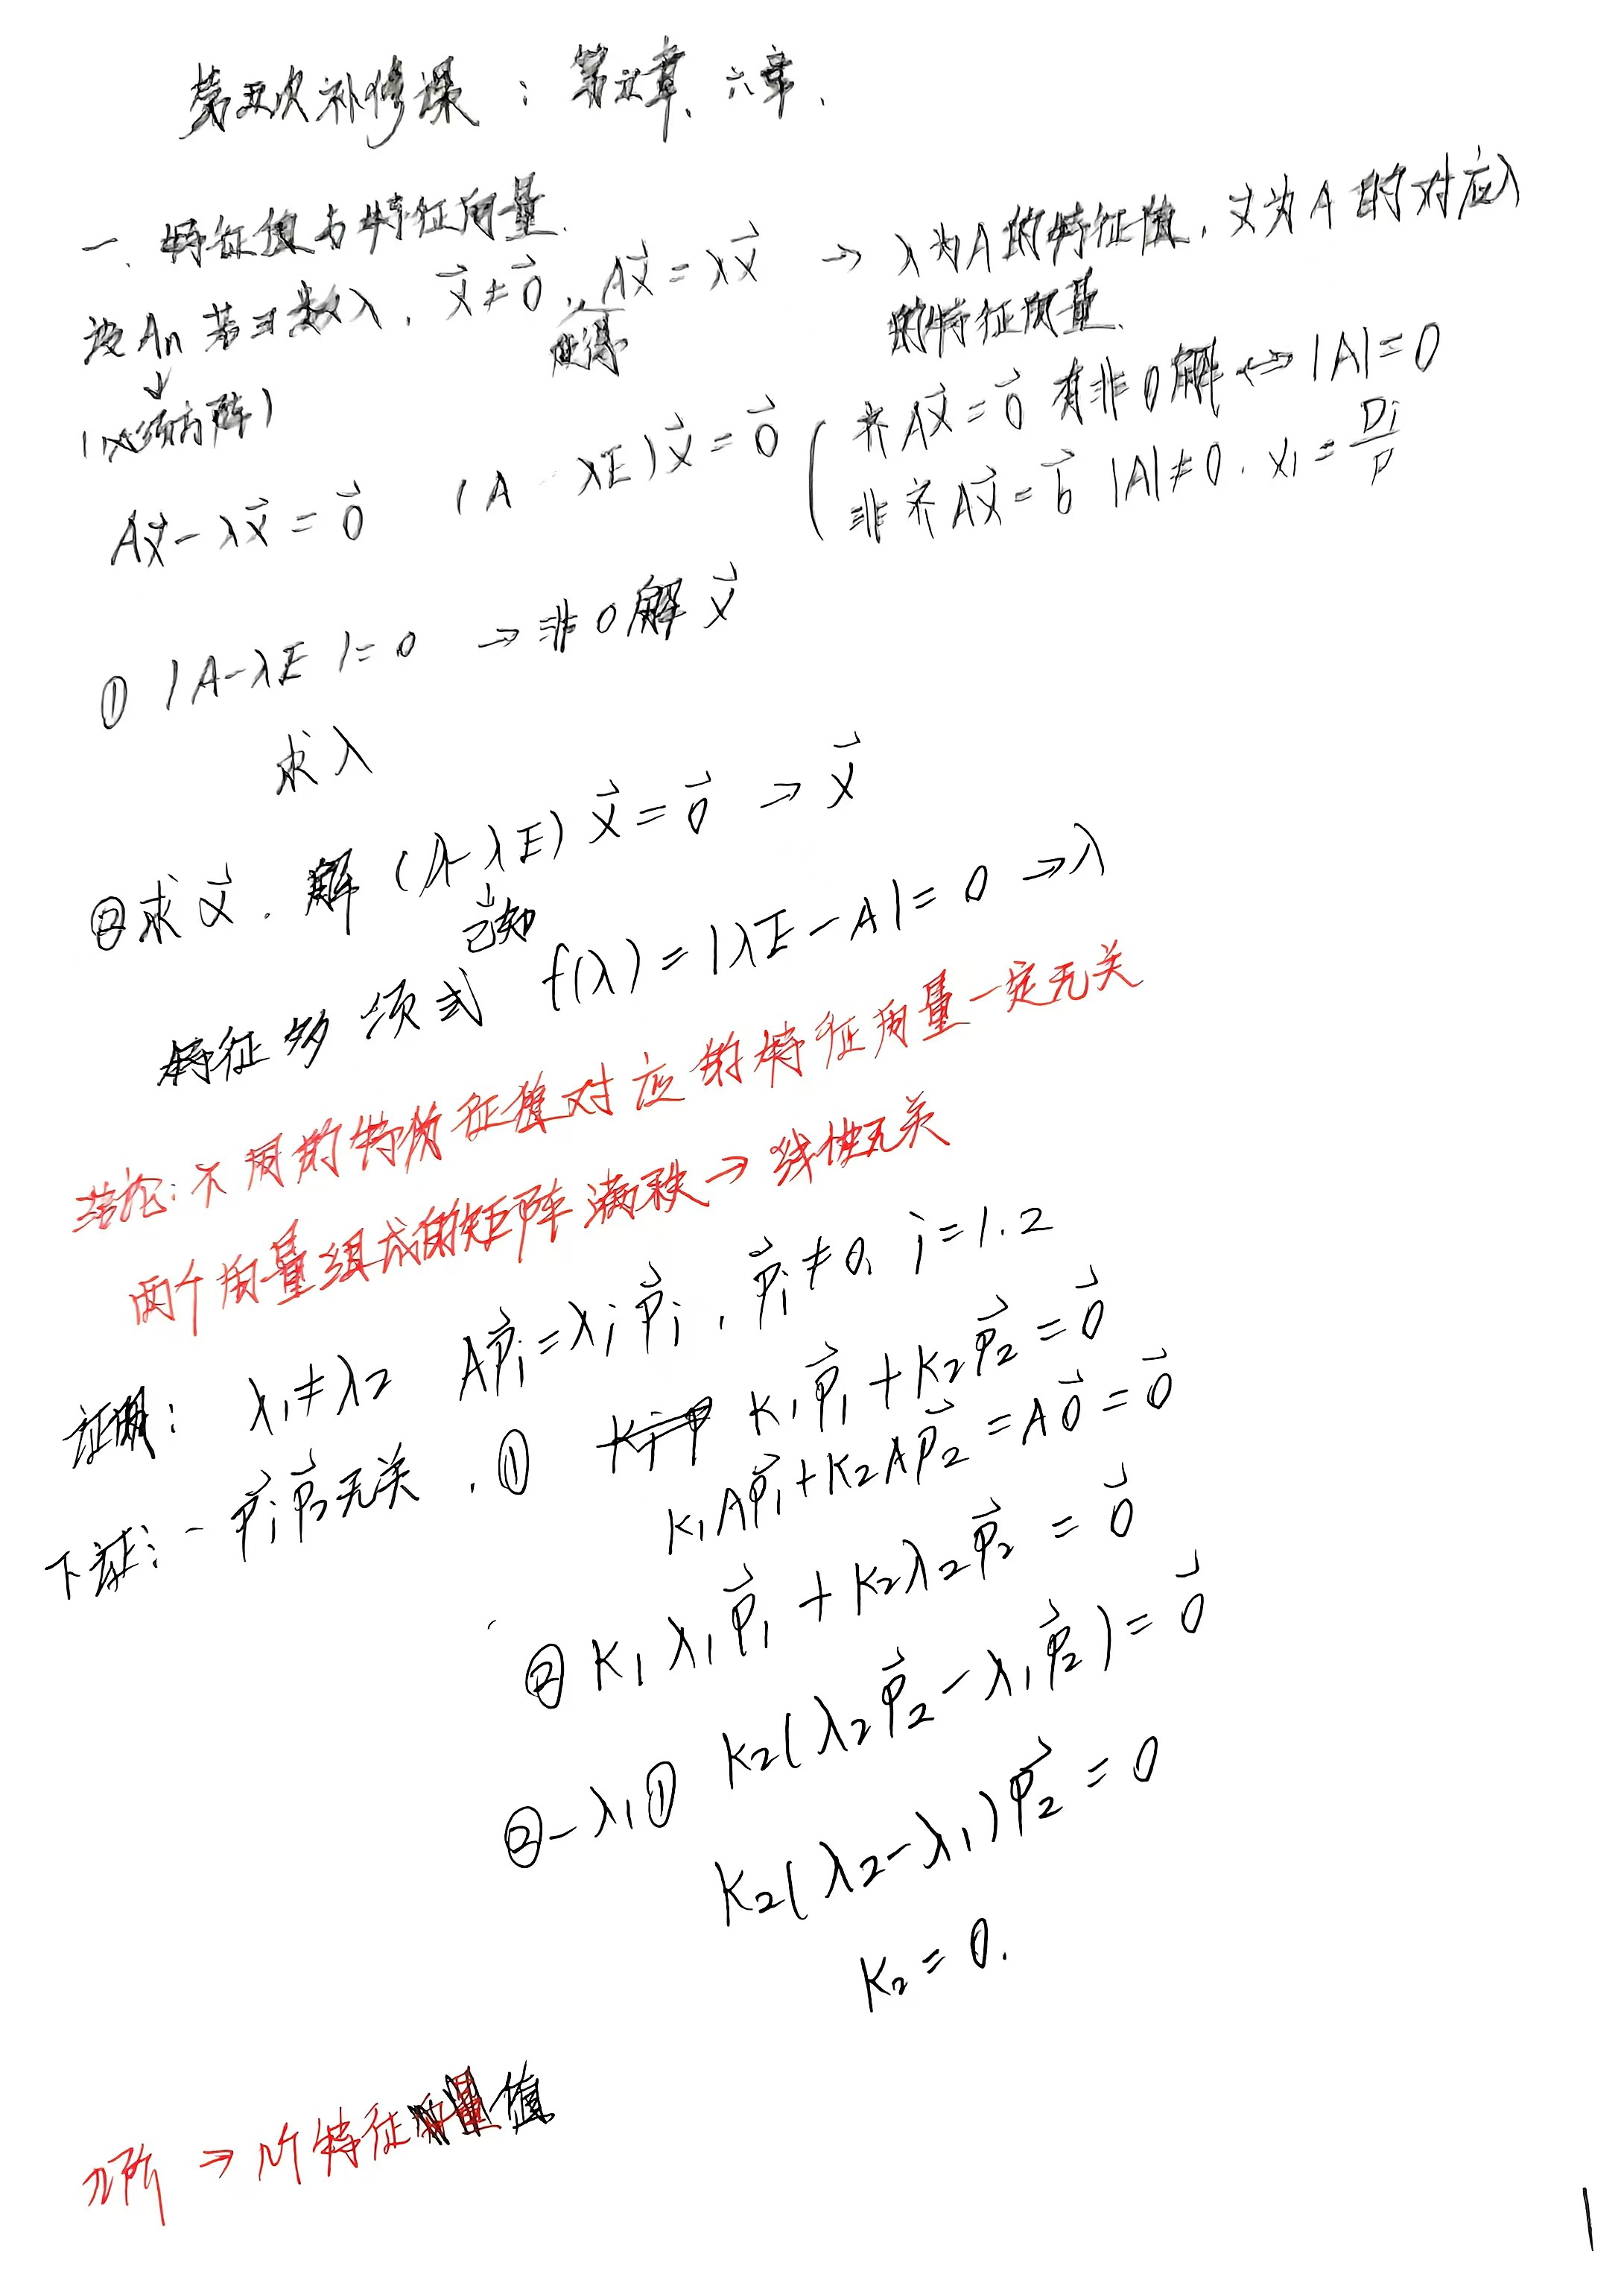 第五次补修课：第五章、六章.
一. 特征值与特征向量.
设An 若∃数λ, x⃗≠0⃗, 使得 Ax⃗=λx⃗ → λ为A的特征值, x⃗为A的对应λ
的特征向量.
↓
(必须方阵)
Ax⃗-λx⃗=0⃗ (A-λE)x⃗=0⃗ ( 齐Ax⃗=0⃗ 有非0解↔|A|=0
非齐Ax⃗=b⃗ |A|≠0. xi=Di/D
① |A-λE|=0 → 非0解x⃗
求λ
②求x⃗. 解(A-λE)x⃗=0⃗ → x⃗
↓
已知
特征多项式 f(λ)=|λE-A|=0 →λ
结论:不同的特征值对应的特征向量一定无关
两个向量组成的矩阵满秩→线性无关
证明: λ1≠λ2 Ap⃗i=λip⃗i, p⃗i≠0, i=1.2
下证:p⃗1p⃗2无关. ① K1p⃗1+K2p⃗2=0⃗
K1Ap⃗1+K2Ap⃗2=A0⃗=0⃗
② K1λ1p⃗1+K2λ2p⃗2=0⃗
②-λ1① K2(λ2p⃗2-λ1p⃗2)=0⃗
K2(λ2-λ1)p⃗2=0
K2=0.
n阶 → n个特征值
1